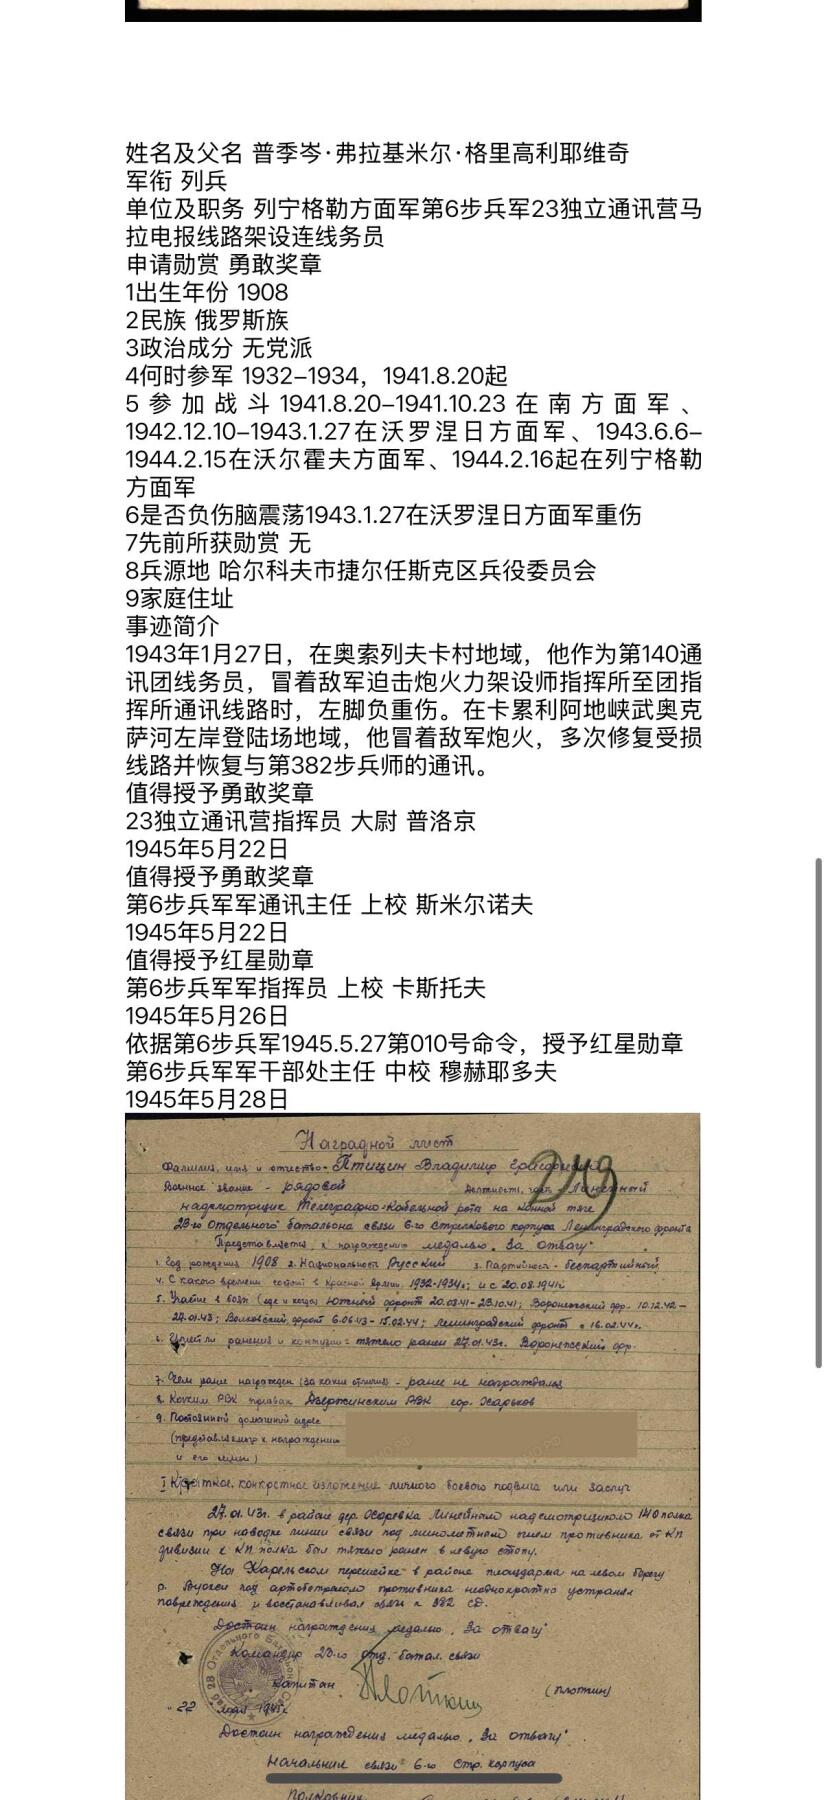 姓名及父名 普季岑·弗拉基米尔·格里高利耶维奇
军衔 列兵
单位及职务 列宁格勒方面军第6步兵军23独立通讯营马
拉电报线路架设连线务员
申请勋赏 勇敢奖章
1出生年份 1908
2民族 俄罗斯族
3政治成分 无党派
4何时参军 1932–1934，1941.8.20起
5参加战斗1941.8.20–1941.10.23在南方面军、
1942.12.10–1943.1.27在沃罗涅日方面军、1943.6.6–
1944.2.15在沃尔霍夫方面军、1944.2.16起在列宁格勒
方面军
6是否负伤脑震荡1943.1.27在沃罗涅日方面军重伤
7先前所获勋赏 无
8兵源地 哈尔科夫市捷尔任斯克区兵役委员会
9家庭住址
事迹简介
1943年1月27日，在奥索列夫卡村地域，他作为第140通
讯团线务员，冒着敌军迫击炮火力架设师指挥所至团指
挥所通讯线路时，左脚负重伤。在卡累利阿地峡武奥克
萨河左岸登陆场地域，他冒着敌军炮火，多次修复受损
线路并恢复与第382步兵师的通讯。
值得授予勇敢奖章
23独立通讯营指挥员 大尉 普洛京
1945年5月22日
值得授予勇敢奖章
第6步兵军军通讯主任 上校 斯米尔诺夫
1945年5月22日
值得授予红星勋章
第6步兵军军指挥员 上校 卡斯托夫
1945年5月26日
依据第6步兵军1945.5.27第010号命令，授予红星勋章
第6步兵军军干部处主任 中校 穆赫耶多夫
1945年5月28日
Наградной лист
Фамилия, имя и отчество - Птицин Владимир Григорьевич
249
Военное звание - рядовой Должность, часть - Линейный
надсмотрщик Телеграфно-Кабельной роты на конной тяге
23-го Отдельного батальона связи 6-го Стрелкового корпуса Ленинградского фронта
Представляется к награждению медалью „За отвагу"
1. Год рождения 1908 2. Национальность Русский 3. Партийность - беспартийный
4. С какого времени состоит в Красной Армии 1932-1934г; и с 20.08.1941г
5. Участие в боях (где и когда) Южный фронт 20.08.41-23.10.41; Воронежский фр. 10.12.42-
27.01.43; Волховский фронт 6.06.43-15.02.44; Ленинградский фронт с 16.02.44г.
6. Имеет ли ранения и контузии - тяжело ранен 27.01.43г. Воронежский фр.
7. Чем ранее награжден (за какие отличия) - ранее не награждался
8. Каким РВК призван Дзержинским РВК гор. Харьков
9. Постоянный домашний адрес
(представляемого к награждению
и его семьи)
I Краткое, конкретное изложение личного боевого подвига или заслуг
27.01.43г. в районе дер. линейным надсмотрщиком 140 полка
связи при наводке линии связи под минометным огнем противника от КП
дивизии к КП полка был тяжело ранен в левую стопу.
На Карельском перешейке в районе плацдарма на левом берегу
р. Вуокси под артобстрелом противника неоднократно устранял
повреждения и восстанавливал связь к 382 СД.
Достоин награждения медалью „За отвагу"
Командир 23-го отд. батал. связи
Капитан Плоткин (Плоткин)
„22" мая 1945г
Достоин награждения медалью „За отвагу"
Начальник связи 6-го Стр. корпуса
Полковник